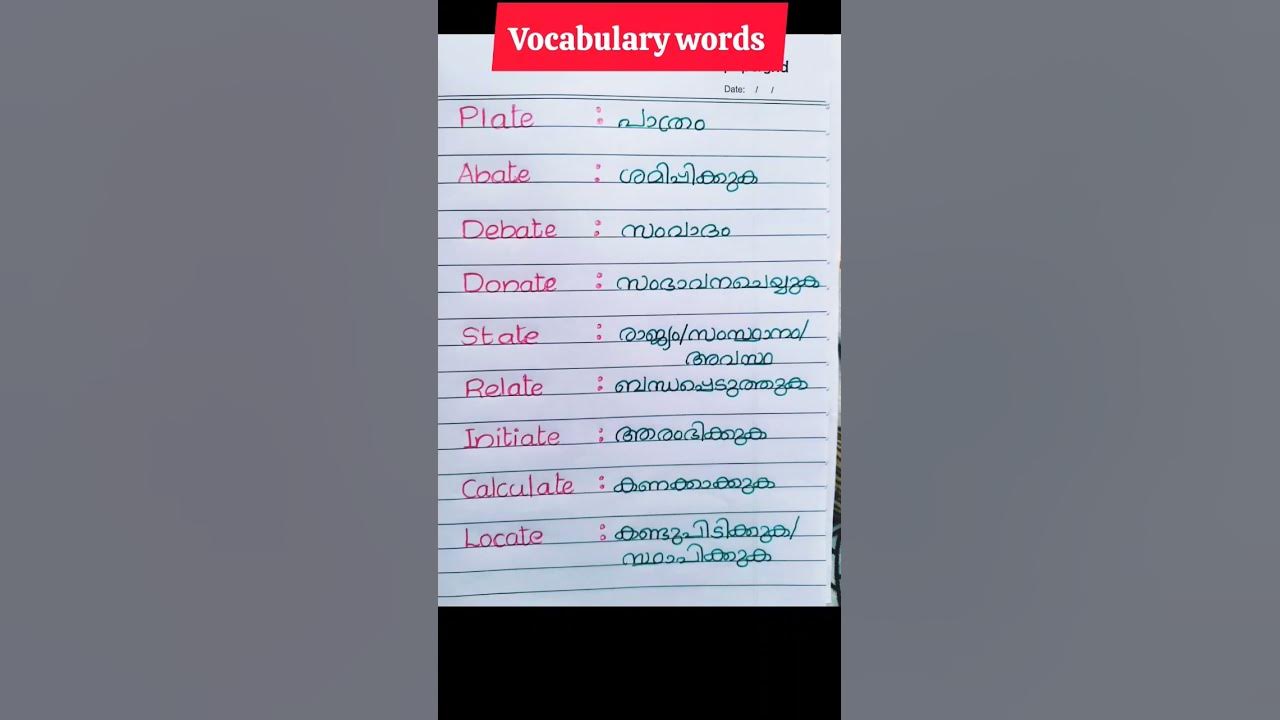 Vocabulary words
Date: / /
Plate : പാത്രം
Abate : ശമിപ്പിക്കുക
Debate : സംവാദം
Donate : സംഭാവനചെയ്യുക
State : രാജ്യം/സംസ്ഥാനം/
അവസ്ഥ
Relate : ബന്ധപ്പെടുത്തുക
Initiate : ആരംഭിക്കുക
Calculate : കണക്കാക്കുക
Locate : കണ്ടുപിടിക്കുക/
സ്ഥാപിക്കുക